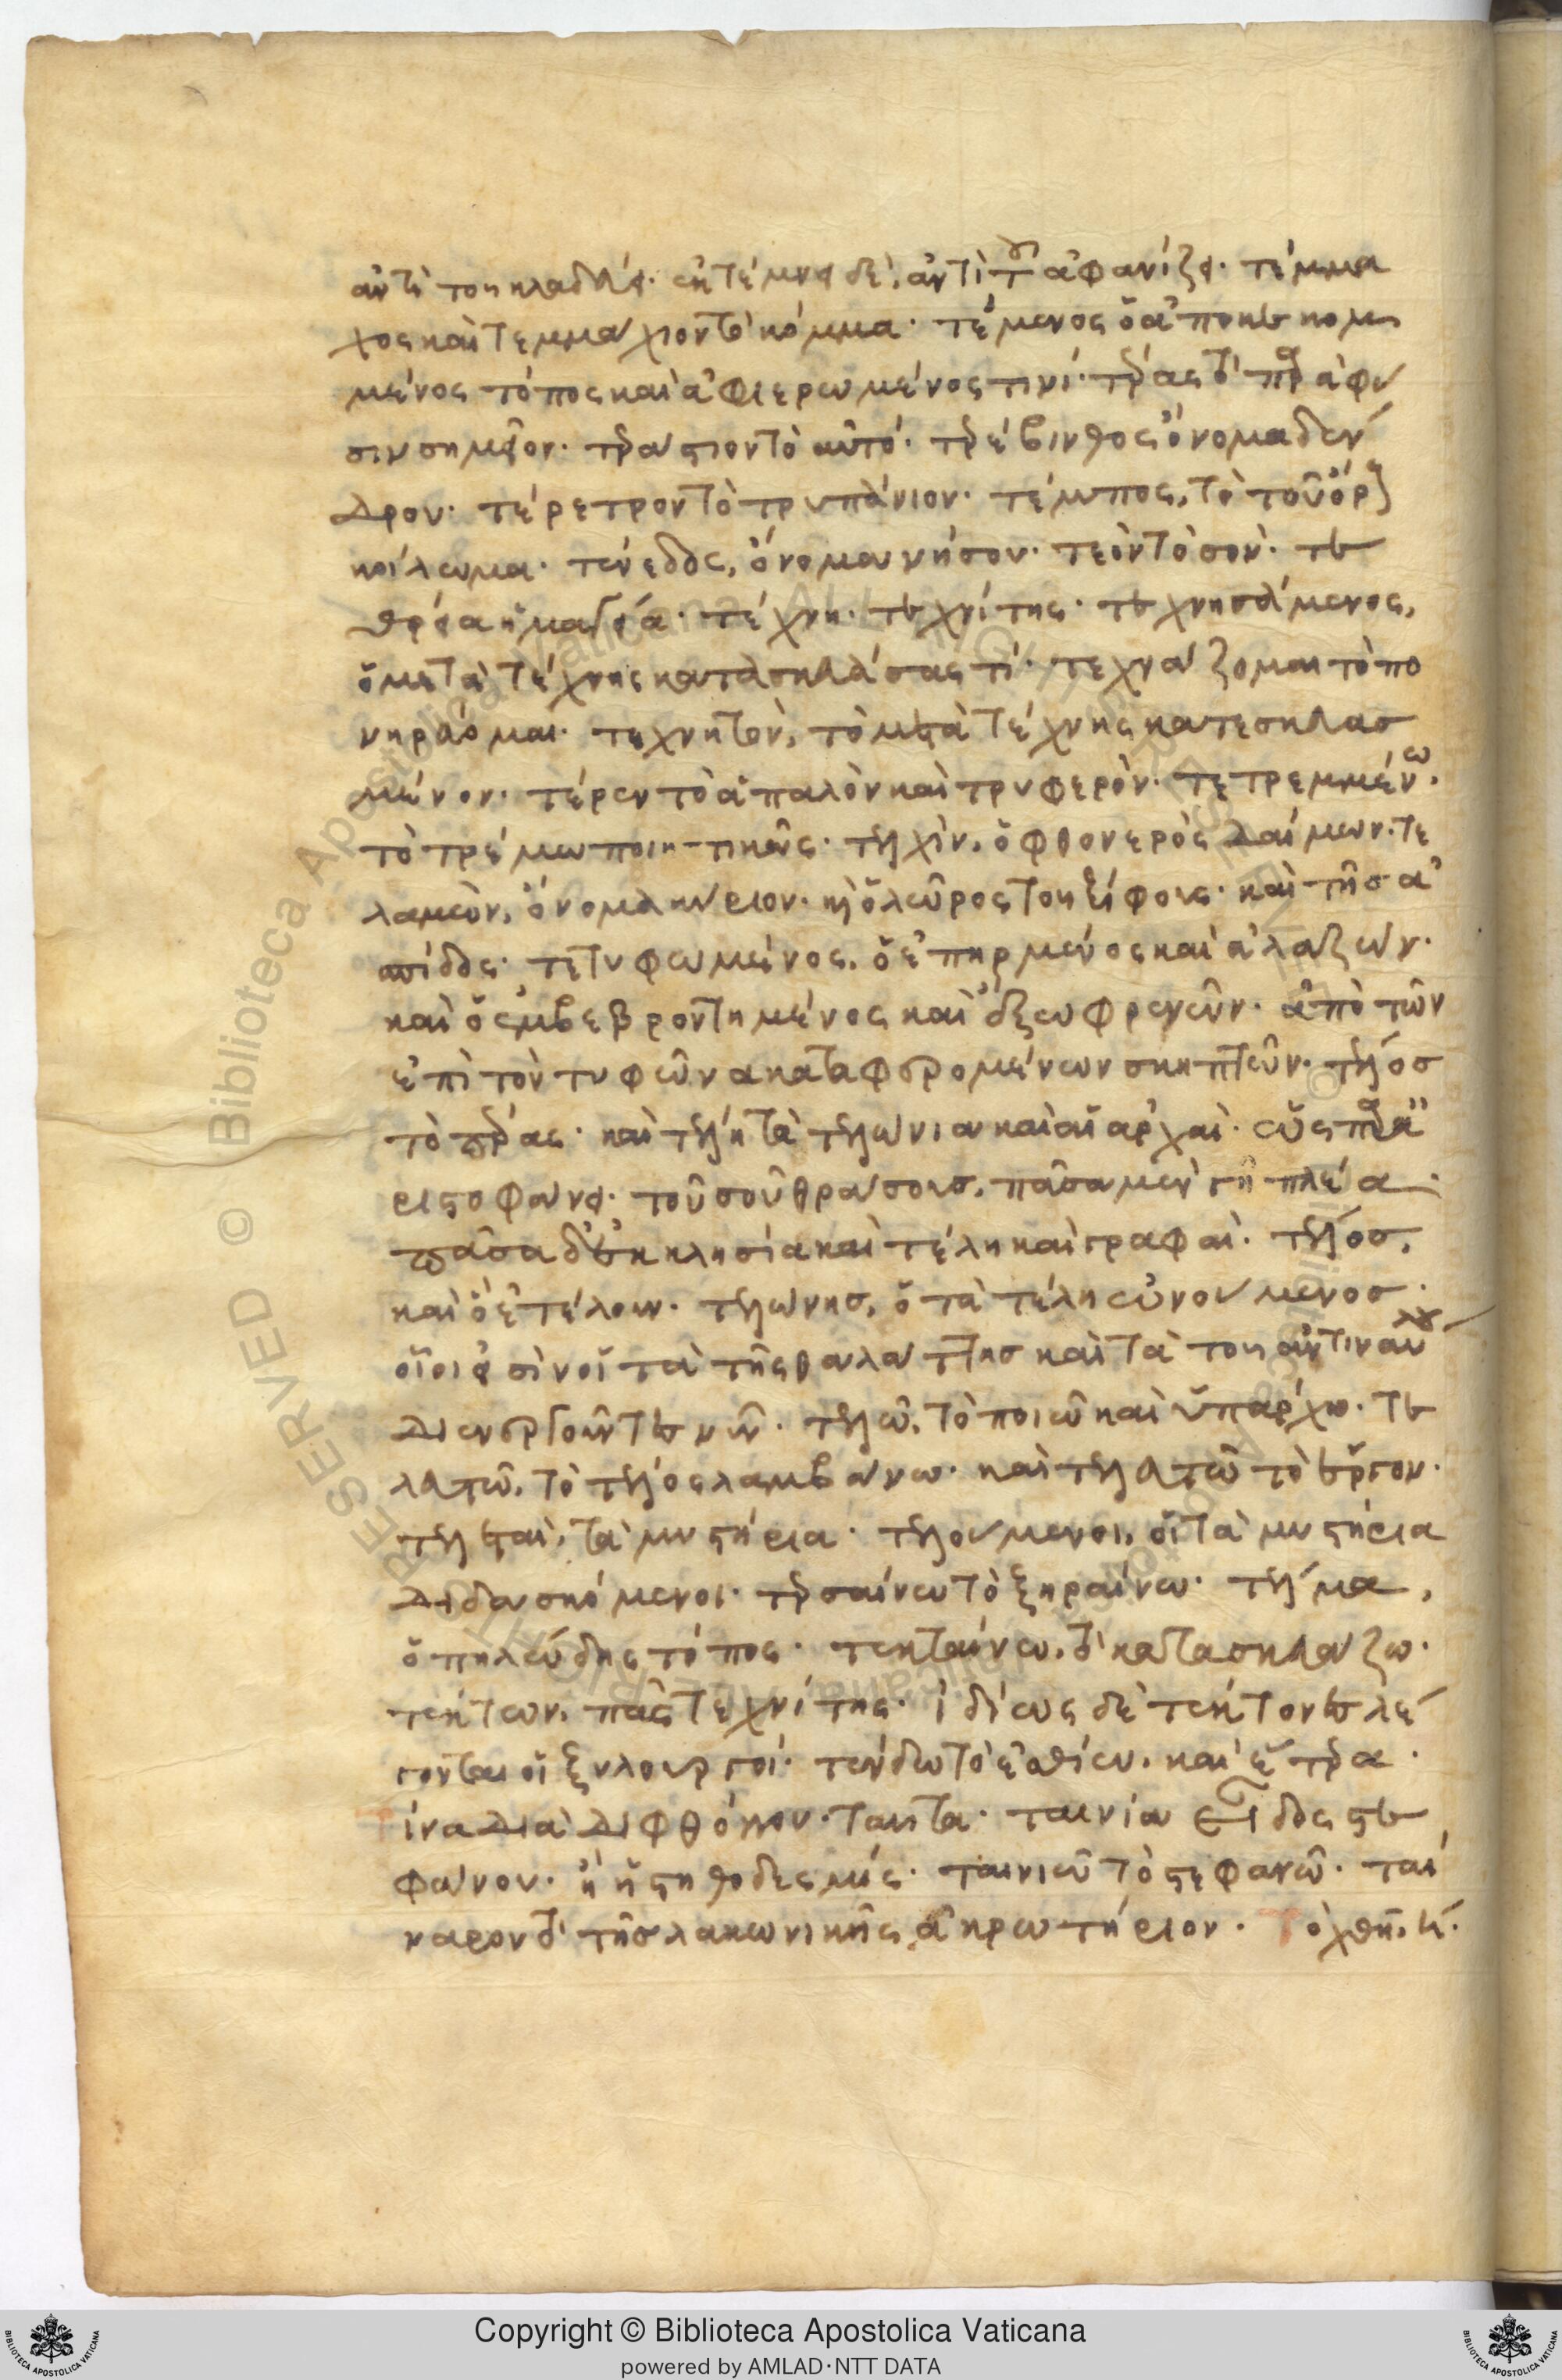 ἀντὶ τοῦ κλαδεύει· ἐκτέμνει δὲ, ἀντὶ τοῦ ἀφανίζει· τέμμα
χος καὶ τεμμάχιον τὸ κόμμα· τέμενος ὁ ἀποκεκομ
μένος τόπος καὶ ἀφιερωμένος τινί· τέρας τὸ παρὰ φύ
σιν σημεῖον· τεράστιον τὸ αὐτό· τερέβινθος ὄνομα δέν
δρου· τέρετρον τὸ τρυπάνιον· τέμπος, τὸ τοῦ ὄρους
κοίλωμα· τένεδος, ὄνομα νήσου· τεὸν τὸ σὸν· τε
θρεία ἡ μαγεία· τέχνη· τεχνίτης· τεχνησάμενος,
ὁ μετὰ τέχνης κατασκευάσας τί· τεχνάζομαι τὸ πο
νηρεύομαι· τεχνητὸν, τὸ μετὰ τέχνης κατεσκευασ
μένον· τέρεν τὸ ἁπαλὸν καὶ τρυφερὸν· τετρεμμένω·
τὸ τρέμω ποιητικῶς· τελχὶν, ὁ φθονερὸς δαίμων· τε
λαμὼν, ὄνομα κύριον· καὶ ὁ λῶρος τοῦ ξίφους· καὶ τῆς ἀ
σπίδος· τετυφωμένος, ὁ ἐπηρμένος καὶ ἀλαζών·
καὶ ὁ ἐμβεβροντημένος καὶ ἔξω φρενῶν· ἀπὸ τῶν
ἐπὶ τὸν τυφῶνα καταφερομένων σκηπτῶν· τέλος
τὸ πέρας· καὶ τέλη τὰ τελώνια καὶ αἱ ἀρχαὶ· ὡς παρὰ ἀ
ριστοφάνει· τοῦ σοῦ θράσους, πᾶσα μὲν γῆ πλέα·
πᾶσα δ' ἐκκλησία καὶ τέλη καὶ γραφαὶ· τέλος,
καὶ ὃ ἐτέλουν· τελώνης, ὁ τὰ τέλη ὠνούμενος·
οἷοι εἰσὶν οἱ τὰ τῆς θαλάττης καὶ τὰ τοῦ ἀντιναύλου
διενεργοῦντες νῦν· τελῶ, τὸ ποιῶ καὶ ὑπάρχω· τε
λευτῶ, τὸ τέλος λαμβάνω· καὶ τελευτῶ τὸ ἔργον·
τελεταὶ, τὰ μυστήρια· τελούμενοι, οἱ τὰ μυστήρια
διδασκόμενοι· τερσαίνω τὸ ξηραίνω· τέλμα,
ὁ πηλώδης τόπος· τεκταίνω, τὸ κατασκευάζω·
τέκτων, πᾶς τεχνίτης· ἰδίως δὲ τέκτονες λέ
γονται οἱ ξυλουργοί· τένδω τὸ ἐσθίω, καὶ ἕτερα·
τίνα διὰ διφθόγγου· ταῦτα· ταινία εἶδος στε
φάνου· ἢ ἡ στηθοδεσμίς· ταινιῶ τὸ στεφανῶ· ταί
ναρον τὸ τῆς λακωνικῆς ἀκρωτήριον·
Copyright © Biblioteca Apostolica Vaticana
powered by AMLAD·NTT DATA